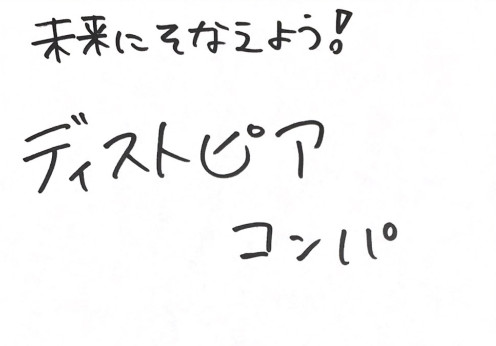 未来にそなえよう!
ディストピア
コンパ